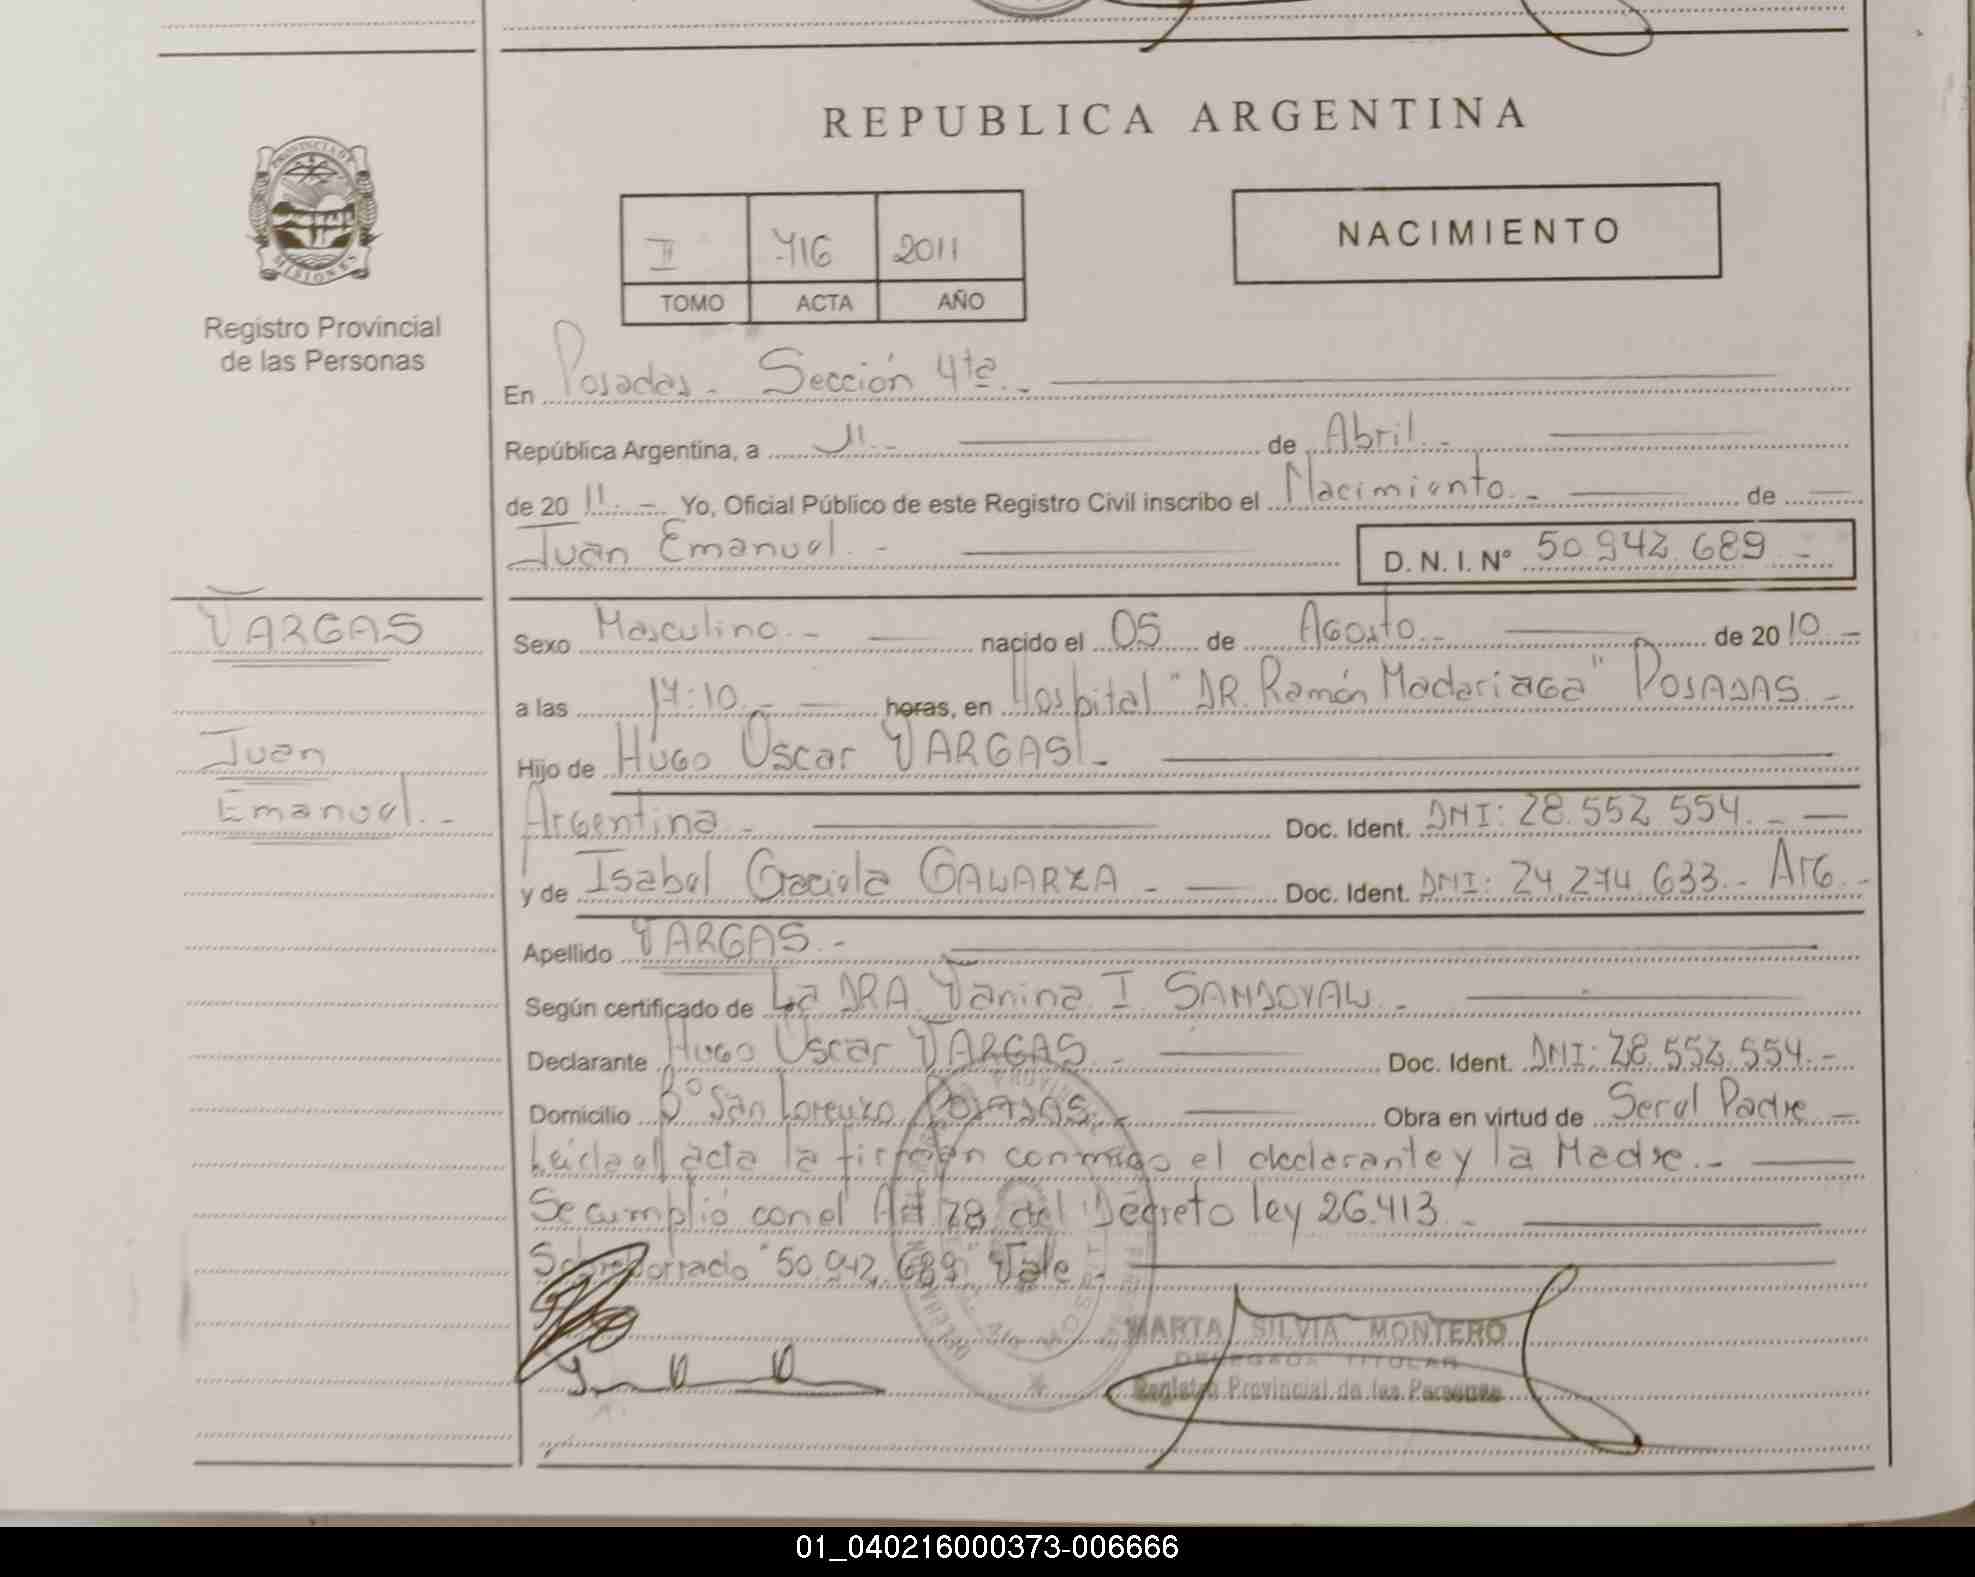 REPUBLICA ARGENTINA
PROVINCIA DE
MISIONES
Registro Provincial
de las Personas
NACIMIENTO
II 716 2011
TOMO ACTA AÑO
En Posadas - Sección 4ta. -
República Argentina, a 11. - de Abril. -
de 20 11. - Yo, Oficial Público de este Registro Civil inscribo el Nacimiento. - de
Juan Emanuel. - D. N. I. Nº 50.942.689 -
VARGAS
Juan
Emanuel. -
Sexo Masculino. - nacido el 05 de Agosto. - de 20 10 -
a las 17:10. - horas, en Hospital "DR. Ramón Madariaga" POSADAS. -
Hijo de Hugo Oscar VARGAS. -
Argentina. - Doc. Ident. DNI: 28.552.554. -
y de Isabel Graciela GALARZA - Doc. Ident. DNI: 24.274.633. - Arg. -
Apellido VARGAS. -
Según certificado de La DRA. Vanina I. SANDOVAL. -
Declarante Hugo Oscar VARGAS. - Doc. Ident. DNI: 28.552.554. -
Domicilio Bº San Lorenzo POSADAS. - Obra en virtud de Ser el Padre -
Leída el acta la firman conmigo el declarante y la Madre. -
Se cumplió con el Art 28 del Decreto ley 26.413. -
Sobreborrado "50.942.689" Vale. -
MARTA SILVIA MONTERO
DELEGADA TITULAR
Registro Provincial de las Personas
01_040216000373-006666